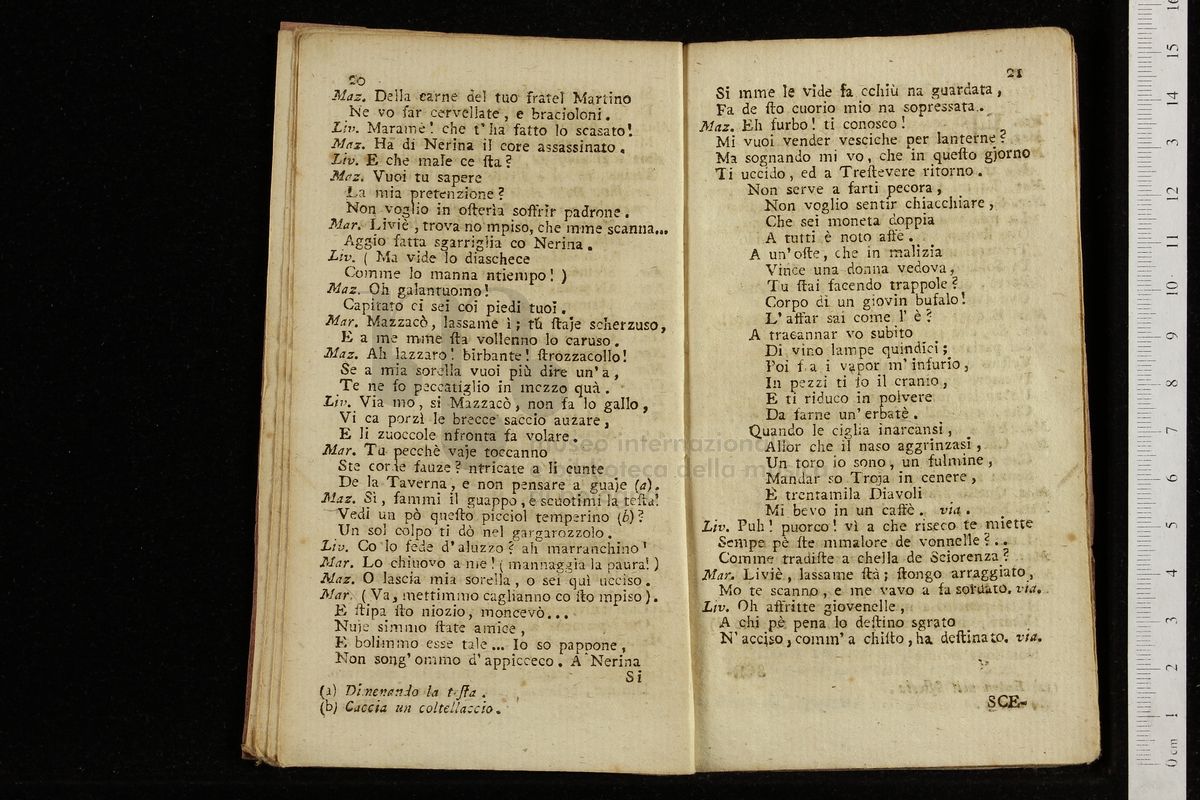 20
Maz. Della carne del tuo fratel Martino
Ne vo far cervellate, e bracioloni.
Liv. Maramè! che t'ha fatto lo scasato!
Maz. Ha di Nerina il core assassinato.
Liv. E che male ce ſta?
Maz. Vuoi tu sapere
La mia pretenzione?
Non voglio in oſterìa soffrir padrone.
Mar. Liviè, trova no mpiso, che mme scanna...
Aggio fatta sgarriglia co Nerina.
Liv. ( Ma vide lo diaschece
Comme lo manna ntiempo! )
Maz. Oh galantuomo!
Capitato ci sei coi piedi tuoi.
Mar. Mazzacò, lassame ì; tu ſtaje scherzuso,
E a me mme ſta vollenno lo caruso.
Maz. Ah lazzaro! birbante! ſtrozzacollo!
Se a mia sorella vuoi più dire un'a,
Te ne fo peccatiglio in mezzo quà.
Liv. Via mo, si Mazzacò, non fa lo gallo,
Vi ca porzì le brecce saccio auzare,
E li zuoccole nfronta fa volare.
Mar. Tu pecchè vaje toccanno
Ste corde fauze? ntricate a li cunte
De la Taverna, e non pensare a guaje (a).
Maz. Sì, fammi il guappo, e scuotimi la teſta!
Vedi un pò queſto picciol temperino (b)?
Un sol colpo ti dò nel gargarozzolo.
Liv. Co lo fede d'aluzzo? ah marranchino!
Mar. Lo chiuovo a me! ( mannaggia la paura! )
Maz. O lascia mia sorella, o sei quì ucciso.
Mar. ( Va, mettimmo caglianno co ſto mpiso ).
E ſtipa ſto niozio, moncevò...
Nuje simmo ſtate amice,
E bolimmo esse tale... Io so pappone,
Non song'ommo d'appicceco. A Nerina
Si
(a) Dimenando la teſta.
(b) Caccia un coltellaccio.
21
Si mme le vide fa cchiù na guardata,
Fa de ſto cuorio mio na sopressata.
Maz. Eh furbo! ti conosco!
Mi vuoi vender vesciche per lanterne?
Ma sognando mi vo, che in queſto gjorno
Ti uccido, ed a Treſtevere ritorno.
Non serve a farti pecora,
Non voglio sentir chiacchiare,
Che sei moneta doppia
A tutti è noto affè.
A un'oſte, che in malizia
Vince una donna vedova,
Tu ſtai facendo trappole?
Corpo di un giovin bufalo!
L'affar sai come l'è?
A tracannar vo subito
Di vino lampe quindici;
Poi fra i vapor m'infurio,
In pezzi ti fo il cranio,
E ti riduco in polvere
Da farne un'erbatè.
Quando le ciglia inarcansi,
Allor che il naso aggrinzasi,
Un toro io sono, un fulmine,
Mandar so Troja in cenere,
E trentamila Diavoli
Mi bevo in un caffè. via.
Liv. Puh! puorco! vì a che riseco te miette
Sempe pè ſte mmalore de vonnelle?..
Comme tradiſte a chella de Sciorenza?
Mar. Liviè, lassame ſtà; ſtongo arraggiato,
Mo te scanno, e me vavo a fa sordato. via.
Liv. Oh affritte giovenelle,
A chi pè pena lo deſtino sgrato
N'acciso, comm'a chiſto, ha deſtinato. via.
SCE-
museo internazionale
biblioteca della musica